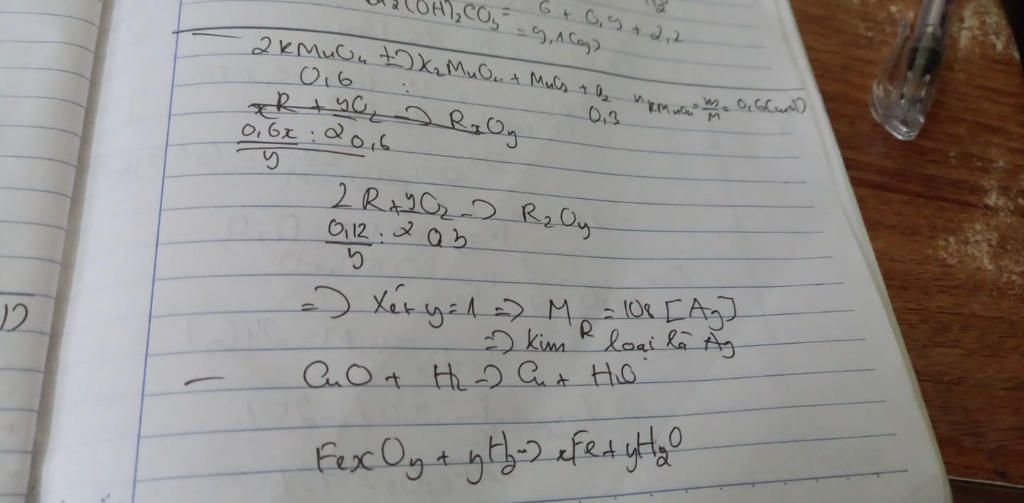 (OH)2CO3 = 6 + 0,9 + 2,2
= 9,1 (g)
2KMnO4 t° → K2MnO4 + MnO2 + O2 nKMnO4 = m/M = 0,6 (mol)
0,6 : 0,3
xR + y/2 O2 → RxOy
0,6x/y : 2 0,6
2R + y/2 O2 → R2Oy
0,12/y : 2 0,3
=> Xét y = 1 => MR = 108 [Ag]
=> kim loại là Ag
— CuO + H2 → Cu + H2O
FexOy + yH2 → xFe + yH2O